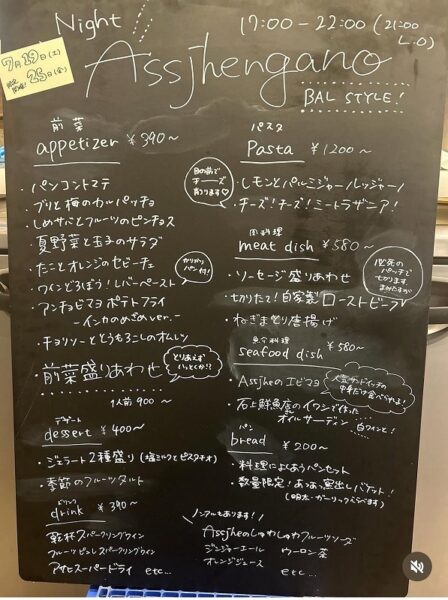 Night!!
17:00-22:00 (21:00 L.O)
7月19日(土)
25日(金)
Assjhengano
BAL STYLE!
前菜
appetizer ¥390~
・パンコントマテ
・ブリと梅のカルパッチョ
・しめサバとフルーツのピンチョス
・夏野菜と玉子のサラダ
・たことオレンジのセビーチェ
・ワインどろぼう!レバーペースト
かりかりパン付!
・アンチョビマヨポテトフライ
-インカのめざめver.-
・チョリソーととうもろこしのオムレツ
・前菜盛りあわせ
とりあえず
1人前 900~
デザート
dessert ¥400~
・ジェラート2種盛り (塩ミルクとピスタチオ)
・季節のフルーツタルト
ドリンク
drink ¥390~
乾杯スパークリングワイン
フルーツピュレスパークリングワイン
アサヒスーパードライ etc...
パスタ
Pasta ¥1200~
目の前でチーズ削ります♡
・レモンとパルミジャーノレッジャーノ
・チーズ!チーズ!ミートラザニア!
肉料理
meat dish ¥580~
・ソーセージ盛りあわせ
・切りたて!自家製ローストビーフ
・ねぎまとり唐揚げ
魚介料理
seafood dish ¥580~
・Assjheのエビマヨ
人気サンドイッチの中身だけ食べられる!
・石上鮮魚店のイワシで作った
オイルサーディン
白ワインと!
パン
bread ¥200~
・料理によくあうパンセット
・数量限定!あぁ、黒出しバゲット!
(明太・ガーリックえらべます)
ノンアルもあります!
Assjheのしゅわしゅわフルーツソーダ
ジンジャーエール ウーロン茶
オレンジジュース etc...